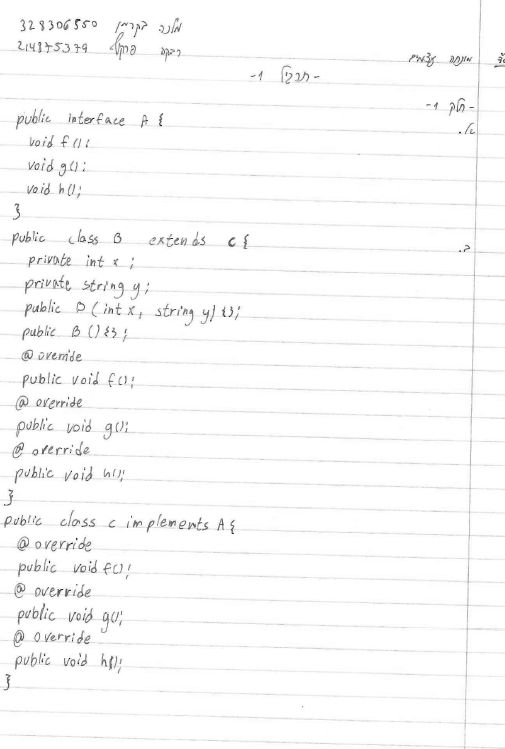 328306550 מלכה בקרמן
214875379 רבקה פרנקל
מונחה עצמים
-תרגיל 1-
-חלק 1-
א.
public interface A {
void f();
void g();
void h();
}
ב.
public class B extends c {
private int x;
private string y;
public B (int x, string y) {};
public B () {};
@override
public void f();
@override
public void g();
@override
public void h();
}
public class c implements A {
@override
public void f();
@override
public void g();
@override
public void h();
}